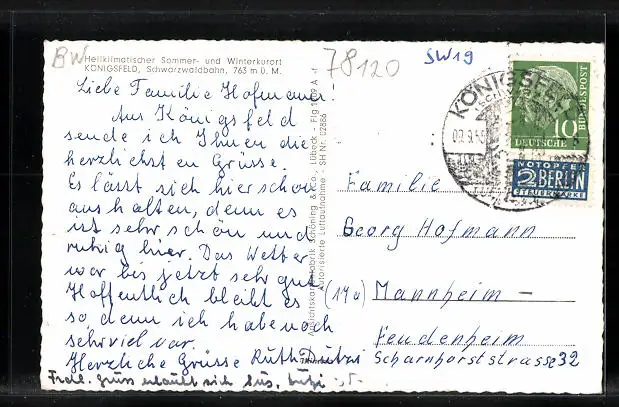 BW
78120
SW19
Heilklimatischer Sommer- und Winterkurort
KÖNIGSFELD, Schwarzwaldbahn, 763 m ü. M.
Liebe Familie Hofmann!
Aus Königsfeld
sende ich Ihnen die
herzlichsten Grüsse.
Es lässt sich hier schon
aushalten, denn es
ist sehr schön und
ruhig hier. Das Wetter
war bis jetzt sehr gut
Hoffentlich bleibt es
so, denn ich habe noch
sehr viel vor.
Herzliche Grüsse Ruth
erlaubt sich
Ansichtskartenfabrik Schöning & Co., Lübeck
KÖNIGSFELD
10
DEUTSCHE
BUNDESPOST
NOTOPFER
2 BERLIN
STEUERMARKE
Familie
Georg Hofmann
Mannheim-
Feudenheim
Scharnhorststrasse 32